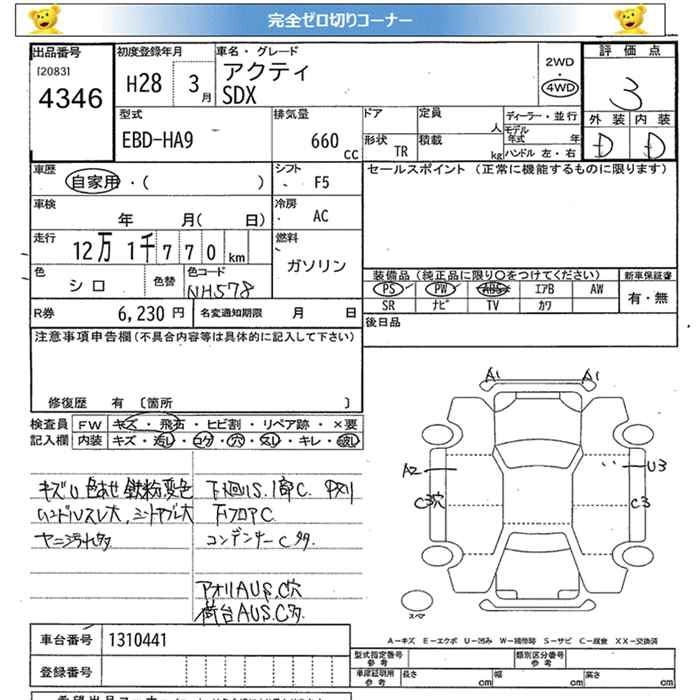 完全ゼロ切りコーナー
出品番号 初度登録年月 車名・グレード 評価点
[2083] 4346 H28 3月 アクティ SDX 2WD・4WD 3
型式 排気量 ドア 定員 人 ディーラー・並行 外装 内装
EBD-HA9 660 cc 形状 TR 積載 kg モデル年式 年 ハンドル 左・右 D D
車歴 シフト セールスポイント (正常に機能するものに限ります)
自家用・( ) F5
車検 冷房
年 月( 日) AC
走行 燃料
12万 1千 7 7 0 km ガソリン
色 色替 色コード 装備品(純正品に限り〇をつけてください) 新車保証書
シロ NH578 PS PW ABS エアB AW 有・無
SR ナビ TV カワ
R券 6,230 円 名変通知期限 月 日 後日品
注意事項申告欄(不具合内容等は具体的に記入して下さい)
修復歴 有 [箇所 ]
検査員 FW キズ・飛石・ヒビ割・リペア跡・×要
記入欄 内装 キズ・汚レ・コゲ・穴・スレ・キレ・破レ
A1 A1
A2 U3
C3穴 C3
キズU 色あせ 鉄粉,変色 下廻りS.1部C.
ハンドルスレ大,
ヤニ汚れ多 下フロアC.
コンデンサーC多.
アオリAUS,C穴
荷台AUS,C多
スペア
A-キズ E-エクボ U-凹み W-補修跡 S-サビ C-腐食 XX-交換済
車台番号 1310441
登録番号
型式指定番号 参考 類別区分番号 参考
車庫証明用 参考 長さ cm 幅 cm 高さ cm
希望出品コーナー